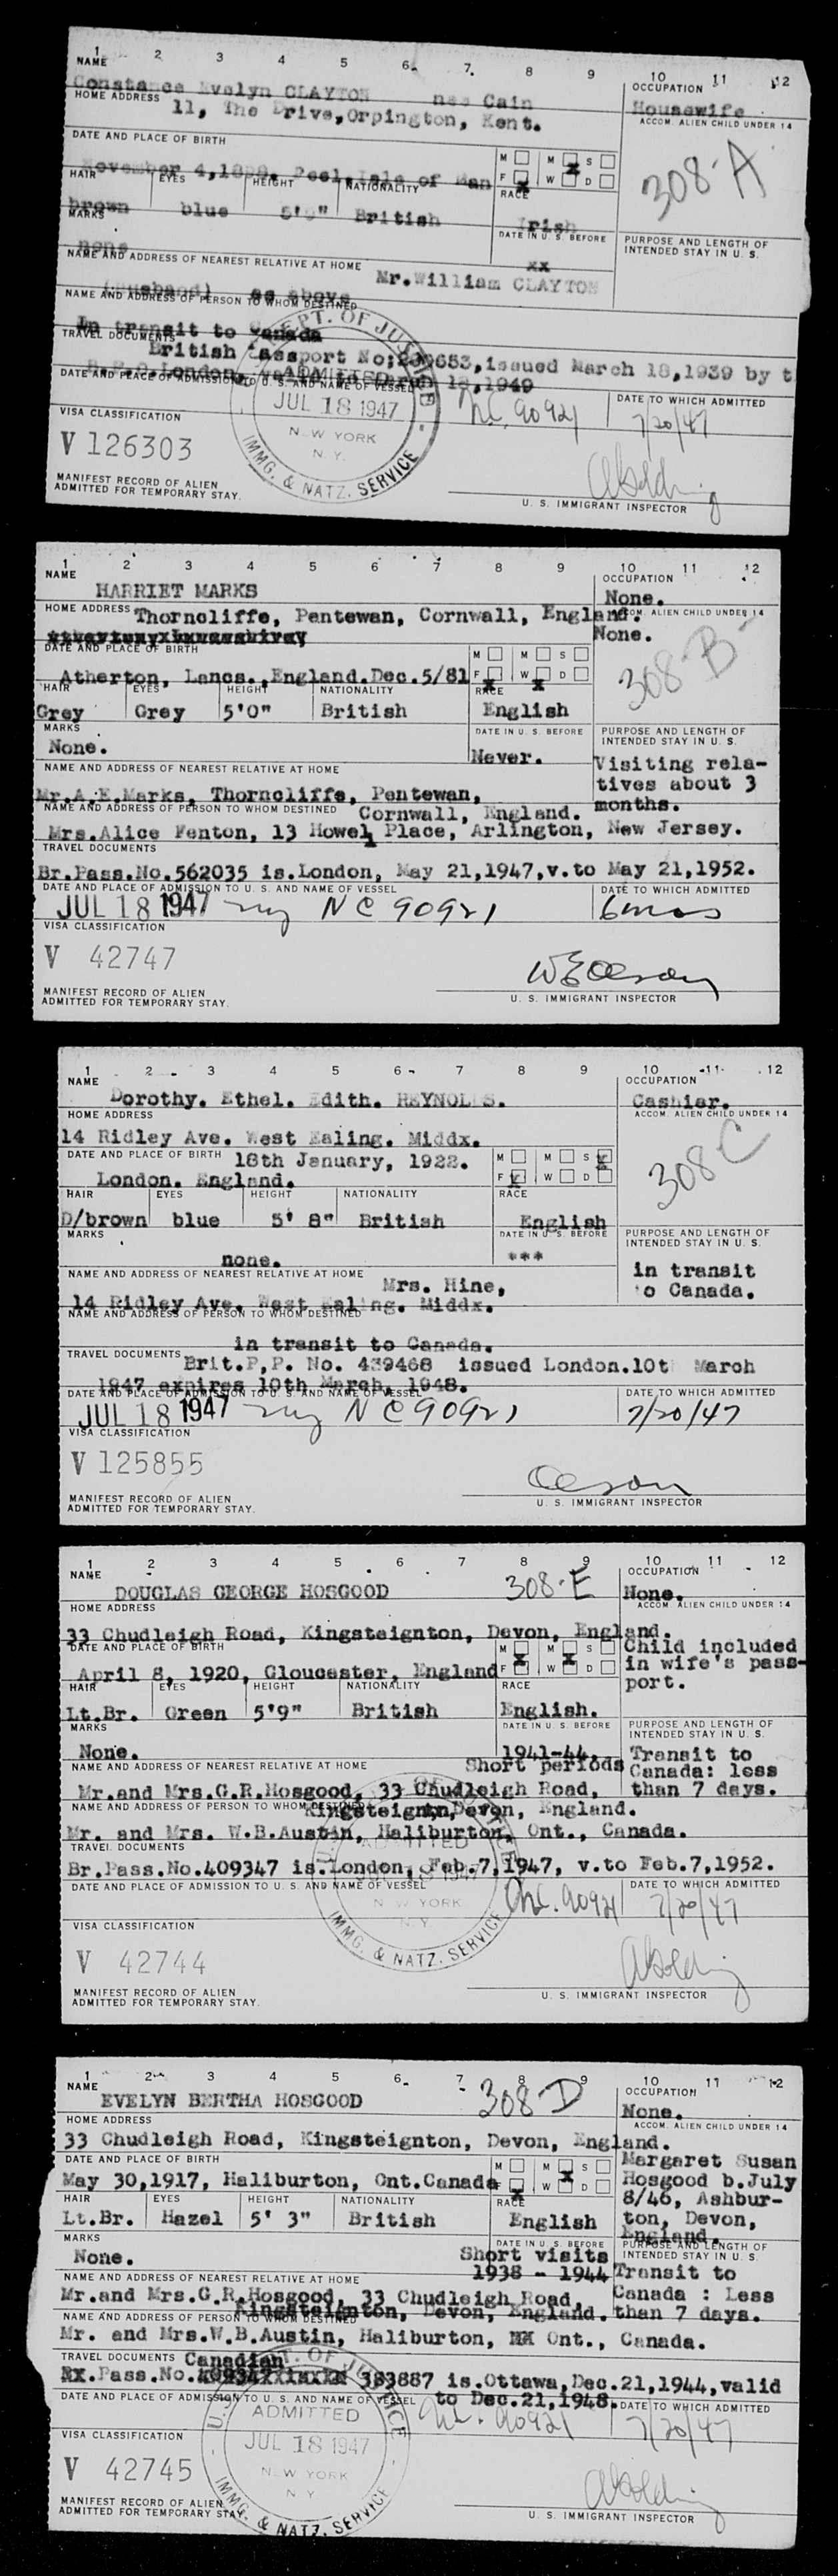 1 2 3 4 5 6 7 8 9 10 11 12
NAME OCCUPATION
Constance Evelyn CLAYTON nee Cain Housewife
HOME ADDRESS ACCOM. ALIEN CHILD UNDER 14
11, The Drive, Orpington, Kent.
308-A
DATE AND PLACE OF BIRTH M M S
November 4, Peel, Isle of Man F W D
HAIR EYES HEIGHT NATIONALITY RACE
brown blue British Irish
MARKS DATE IN U. S. BEFORE PURPOSE AND LENGTH OF
INTENDED STAY IN U. S.
none xx
NAME AND ADDRESS OF NEAREST RELATIVE AT HOME Mr. William CLAYTON
(Husband) as above
NAME AND ADDRESS OF PERSON TO WHOM DESTINED
In transit to Canada
TRAVEL DOCUMENTS
British Passport No; issued March 18,1939 by t
London, March 18,1949
DATE AND PLACE OF ADMISSION TO U. S. AND NAME OF VESSEL DATE TO WHICH ADMITTED
DEPT. OF JUSTICE
ADMITTED
JUL 18 1947
NEW YORK
N. Y.
IMMG. & NATZ. SERVICE
90921 7/20/47
VISA CLASSIFICATION
V 126303
MANIFEST RECORD OF ALIEN
ADMITTED FOR TEMPORARY STAY.
U. S. IMMIGRANT INSPECTOR
1 2 3 4 5 6 7 8 9 10 11 12
NAME OCCUPATION
HARRIET MARKS None.
HOME ADDRESS Thorncliffe, Pentewan, Cornwall, England. ACCOM. ALIEN CHILD UNDER 14
None.
308-B
DATE AND PLACE OF BIRTH M M S
Atherton, Lancs., England.Dec.5/81 F W D
HAIR EYES HEIGHT NATIONALITY RACE
Grey Grey 5'0" British English
MARKS DATE IN U. S. BEFORE PURPOSE AND LENGTH OF
INTENDED STAY IN U. S.
None. Never. Visiting rela-
tives about 3
months.
NAME AND ADDRESS OF NEAREST RELATIVE AT HOME
Mr.A.E.Marks, Thorncliffe, Pentewan,
Cornwall, England.
NAME AND ADDRESS OF PERSON TO WHOM DESTINED
Mrs.Alice Fenton, 13 Howel Place, Arlington, New Jersey.
TRAVEL DOCUMENTS
Br.Pass.No.562035 is.London, May 21,1947,v.to May 21,1952.
DATE AND PLACE OF ADMISSION TO U. S. AND NAME OF VESSEL DATE TO WHICH ADMITTED
JUL 18 1947 ny NC 90921 6 mos
VISA CLASSIFICATION
V 42747
W E Olson
MANIFEST RECORD OF ALIEN
ADMITTED FOR TEMPORARY STAY.
U. S. IMMIGRANT INSPECTOR
1 2 3 4 5 6 7 8 9 10 11 12
NAME OCCUPATION
Dorothy. Ethel. Edith. REYNOLDS. Cashier.
HOME ADDRESS ACCOM. ALIEN CHILD UNDER 14
14 Ridley Ave. West Ealing. Middx.
308 C
DATE AND PLACE OF BIRTH 18th January, 1922. M M S
London. England. F W D
HAIR EYES HEIGHT NATIONALITY RACE
D/brown blue 5' 8" British English
MARKS DATE IN U. S. BEFORE PURPOSE AND LENGTH OF
INTENDED STAY IN U. S.
none. *** in transit
to Canada.
NAME AND ADDRESS OF NEAREST RELATIVE AT HOME Mrs. Hine,
14 Ridley Ave. West Ealing. Middx.
NAME AND ADDRESS OF PERSON TO WHOM DESTINED
in transit to Canada.
TRAVEL DOCUMENTS Brit.P.P. No. 439468 issued London.10t March
1947 expires 10th March, 1948.
DATE AND PLACE OF ADMISSION TO U. S. AND NAME OF VESSEL DATE TO WHICH ADMITTED
JUL 18 1947 ny NC 90921 7/20/47
VISA CLASSIFICATION
V 125855
Olson
MANIFEST RECORD OF ALIEN
ADMITTED FOR TEMPORARY STAY.
U. S. IMMIGRANT INSPECTOR
1 2 3 4 5 6 7 8 9 10 11 12
NAME 308-E OCCUPATION
DOUGLAS GEORGE HOSGOOD None.
HOME ADDRESS ACCOM. ALIEN CHILD UNDER 14
33 Chudleigh Road, Kingsteignton, Devon, England.
Child included
in wife's pass-
port.
DATE AND PLACE OF BIRTH M M S
April 8, 1920, Gloucester, England F W D
HAIR EYES HEIGHT NATIONALITY RACE
Lt.Br. Green 5'9" British English.
MARKS DATE IN U. S. BEFORE PURPOSE AND LENGTH OF
INTENDED STAY IN U. S.
None. 1941-44,
Short periods
Transit to
Canada: less
than 7 days.
NAME AND ADDRESS OF NEAREST RELATIVE AT HOME
Mr.and Mrs.G.R.Hosgood, 33 Chudleigh Road,
Kingsteignton, Devon, England.
NAME AND ADDRESS OF PERSON TO WHOM DESTINED
Mr. and Mrs. W.B.Austin, Haliburton, Ont., Canada.
TRAVEL DOCUMENTS
Br.Pass.No.409347 is.London, Feb.7,1947, v.to Feb.7,1952.
DATE AND PLACE OF ADMISSION TO U. S. AND NAME OF VESSEL DATE TO WHICH ADMITTED
ADMITTED
NEW YORK
N. Y.
IMMG. & NATZ. SERVICE
90921 7/20/47
VISA CLASSIFICATION
V 42744
MANIFEST RECORD OF ALIEN
ADMITTED FOR TEMPORARY STAY.
U. S. IMMIGRANT INSPECTOR
1 2 3 4 5 6 7 8 9 10 11 12
NAME 308-D OCCUPATION
EVELYN BERTHA HOSGOOD None.
HOME ADDRESS ACCOM. ALIEN CHILD UNDER 14
33 Chudleigh Road, Kingsteignton, Devon, England.
Margaret Susan
Hosgood b.July
8/46, Ashbur-
ton, Devon,
England.
DATE AND PLACE OF BIRTH M M S
May 30,1917, Haliburton, Ont.Canada F W D
HAIR EYES HEIGHT NATIONALITY RACE
Lt.Br. Hazel 5' 3" British English
MARKS DATE IN U. S. BEFORE PURPOSE AND LENGTH OF
INTENDED STAY IN U. S.
None. Short visits
1938 - 1944
Transit to
Canada : Less
than 7 days.
NAME AND ADDRESS OF NEAREST RELATIVE AT HOME
Mr.and Mrs.G.R.Hosgood, 33 Chudleigh Road
Kingsteignton, Devon, England.
NAME AND ADDRESS OF PERSON TO WHOM DESTINED
Mr. and Mrs.W.B.Austin, Haliburton, Ont., Canada.
TRAVEL DOCUMENTS Canadian
Pass.No. 383887 is.Ottawa,Dec.21,1944,valid
to Dec.21,1948.
DATE AND PLACE OF ADMISSION TO U. S. AND NAME OF VESSEL DATE TO WHICH ADMITTED
ADMITTED
JUL 18 1947
NEW YORK
N Y
IMMG. & NATZ. SERVICE
90921 7/20/47
VISA CLASSIFICATION
V 42745
MANIFEST RECORD OF ALIEN
ADMITTED FOR TEMPORARY STAY.
U. S. IMMIGRANT INSPECTOR